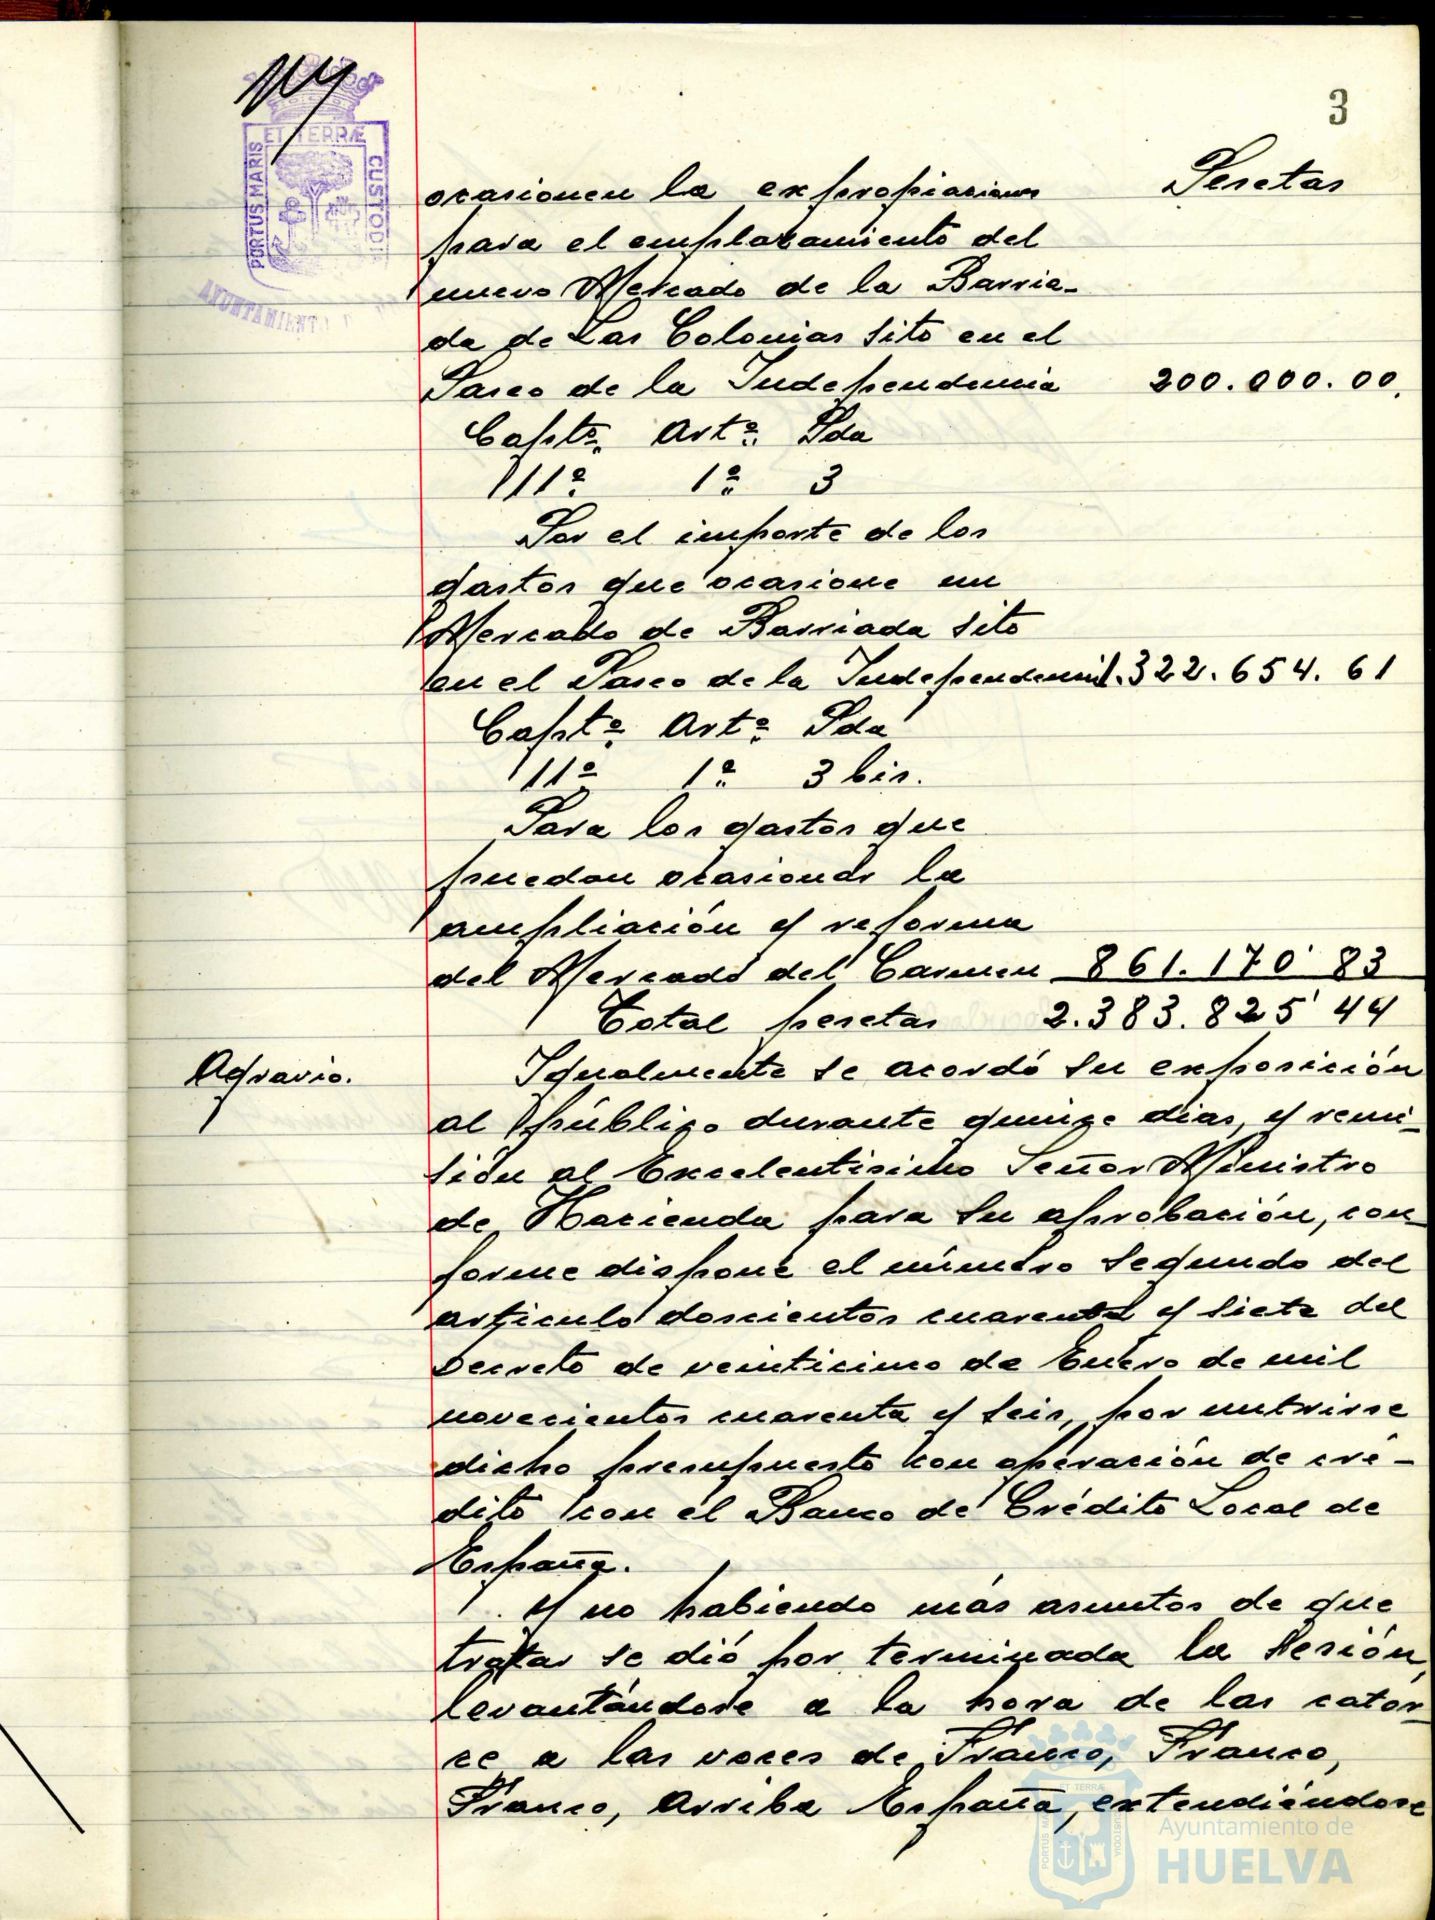 3
PORTUS MARIS ET TERRÆ CUSTODIA
AYUNTAMIENTO
Pesetas
ocasionen la expropiaciones
para el emplazamiento del
nuevo Mercado de la Barria-
da de Las Colonias sito en el
Paseo de la Independencia 200.000.00.
Captº. Artº. Pda
11º. 1º. 3
Por el importe de los
gastos que ocasione un
Mercado de Barriada sito
en el Paseo de la Independencia 1.322.654.61
Captº. Artº. Pda
11º 1º. 3 bis.
Para los gastos que
puedan ocasionar la
ampliación y reforma
del Mercado del Carmen 861.170'83
Total pesetas 2.383.825'44
Agravio.
Igualmente se acordó su exposición
al público durante quinze dias, y remi-
sión al Excelentisimo Señor Ministro
de Hacienda para su aprobación, con
forme dispone el número segundo del
articulo doscientos cuarenta y siete del
Decreto de veinticinco de Enero de mil
novecientos cuarenta y seis, por nutrirse
dicho presupuesto con operación de cré-
dito con el Banco de Crédito Local de
España.
Y no habiendo más asuntos de que
tratar se dió por terminada la sesión,
levantándose a la hora de las cator-
ce a las voces de Franco, Franco,
Franco, Arriba España, extendiéndose
ET TERRÆ
Ayuntamiento de
HUELVA